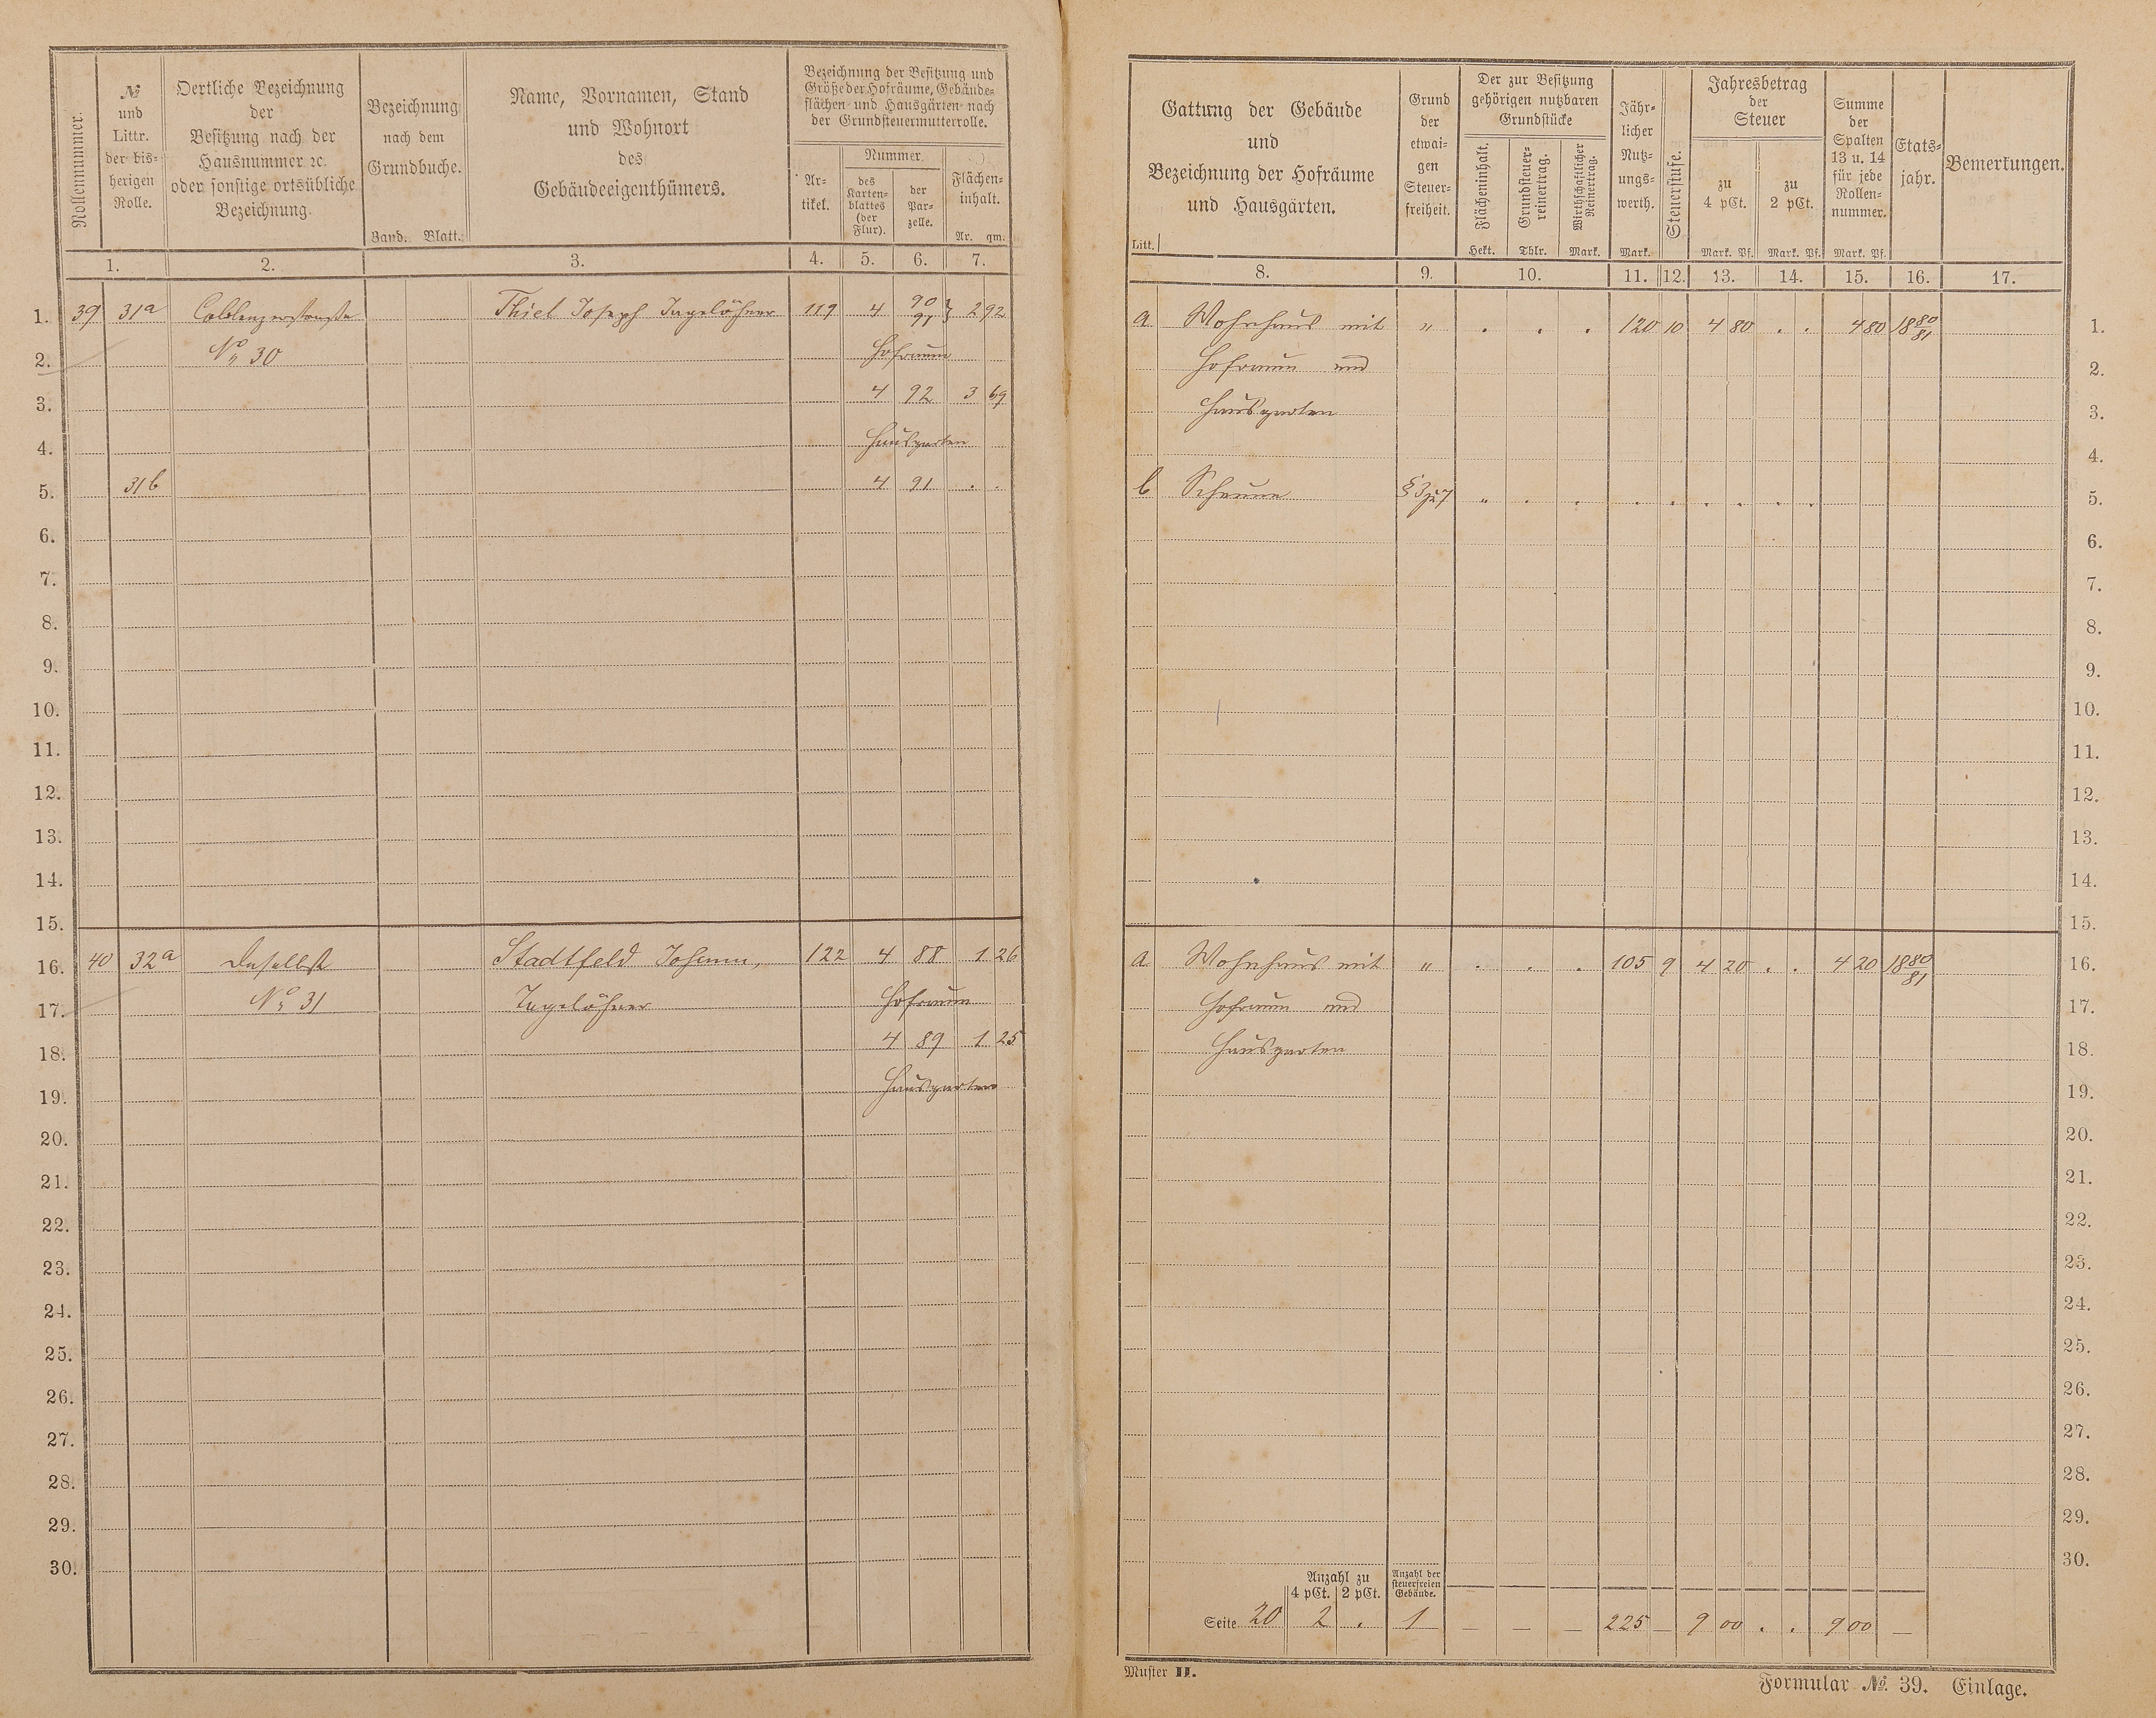 Rollennummer.
№
und
Littr.
der bis-
herigen
Rolle.
Oertliche Bezeichnung
der
Besitzung nach der
Hausnummer ꝛc.
oder sonstige ortsübliche
Bezeichnung.
Bezeichnung
nach dem
Grundbuche.
Band. Blatt.
Name, Vornamen, Stand
und Wohnort
des
Gebäudeeigenthümers.
Bezeichnung der Besitzung und
Größe der Hofräume, Gebäude-
flächen und Hausgärten nach
der Grundsteuermutterrolle.
Ar-
tikel.
Nummer
des
Karten-
blattes
(der
Flur).
der
Par-
zelle.
Flächen-
inhalt.
Ar. qm.
1. 2. 3. 4. 5. 6. 7.
1. 39 31a Coblenzerstraße Thiel Joseph Tagelöhner 119 4 90 } 2 92
91
2. No 30 Hofraum
3. 4 92 3 69
4. Hausgarten
5. 31b 4 91 . .
6.
7.
8.
9.
10.
11.
12.
13.
14.
15.
16. 40 32a Daselbst Stadtfeld Johann, 122 4 88 1 26
17. No 31 Tagelöhner Hofraum
18. 4 89 1 25
19. Hausgarten
20.
21.
22.
23.
24.
25.
26.
27.
28.
29.
30.
Gattung der Gebäude
und
Bezeichnung der Hofräume
und Hausgärten.
Litt.
Grund
der
etwai-
gen
Steuer-
freiheit.
Der zur Besitzung
gehörigen nutzbaren
Grundstücke
Flächeninhalt.
Hekt.
Grundsteuer-
reinertrag.
Thlr.
Wirthschaftlicher
Reinertrag.
Mark.
Jähr-
licher
Nutz-
ungs-
werth.
Mark.
Steuerstufe.
Jahresbetrag
der
Steuer
zu
4 pCt.
Mark. Pf.
zu
2 pCt.
Mark. Pf.
Summe
der
Spalten
13 u. 14
für jede
Rollen-
nummer.
Mark. Pf.
Etats-
jahr.
Bemerkungen.
8. 9. 10. 11. 12. 13. 14. 15. 16. 17.
a Wohnhaus mit " . . . 120 10 4 80 . . 4 80 1880/81 1.
Hofraum und 2.
Hausgarten 3.
4.
b Scheune § 3 zu 7 " . . . . . . . . 5.
6.
7.
8.
9.
10.
11.
12.
13.
14.
15.
a Wohnhaus mit " . . . 105 9 4 20 . . 4 20 1880/81 16.
Hofraum und 17.
Hausgarten 18.
19.
20.
21.
22.
23.
24.
25.
26.
27.
28.
29.
30.
Anzahl zu
4 pCt. 2 pCt.
Anzahl der
steuerfreien
Gebäude.
Seite 20 2 . 1 — — — 225 — 9 00 . . 9 00 —
Muster II.
Formular № 39. Einlage.